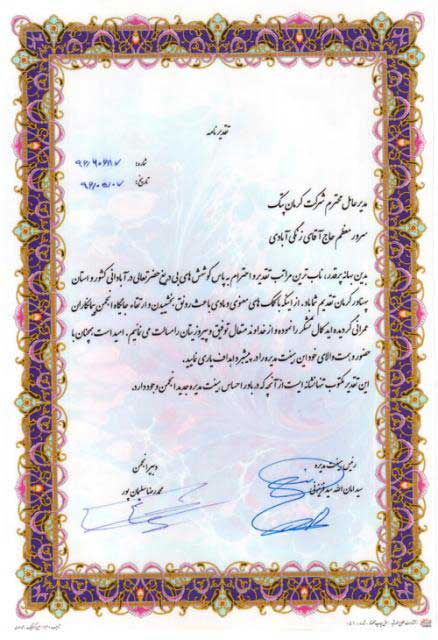 تقدیرنامه
شماره: ۹۶/۶۰۶۸۷
تاریخ: ۹۶/۰۵/۰۷
مدیرعامل محترم شرکت کرمان پیک
سرور معظم حاج آقای زنگی آبادی
بدین بهانه پرقدر، ناب ترین مراتب تقدیر و احترام به پاس کوشش های بی دریغ حضرتعالی در آبادانی کشور و استان
پهناور کرمان تقدیم شما باد. از اینکه با کمک های معنوی و مادی باعث رونق بخشیدن و ارتقاء جایگاه انجمن پیمانکاران
عمرانی گردیده اید کمال تشکر را نموده و از خداوند متعال توفیق و پیروزیتان را مسالت می نمائیم. امید است همچنان با
حضور و همت والای خود این هیئت مدیره را در پیشبرد اهداف یاری نمایید.
این تقدیر مکتوب تنها نشانه ایست از آنچه که در باور احساس هیئت مدیره جدید انجمن وجود دارد.
رئیس هیئت مدیره
سید امان الله
دبیر انجمن
محمدرضا سلیمان پور